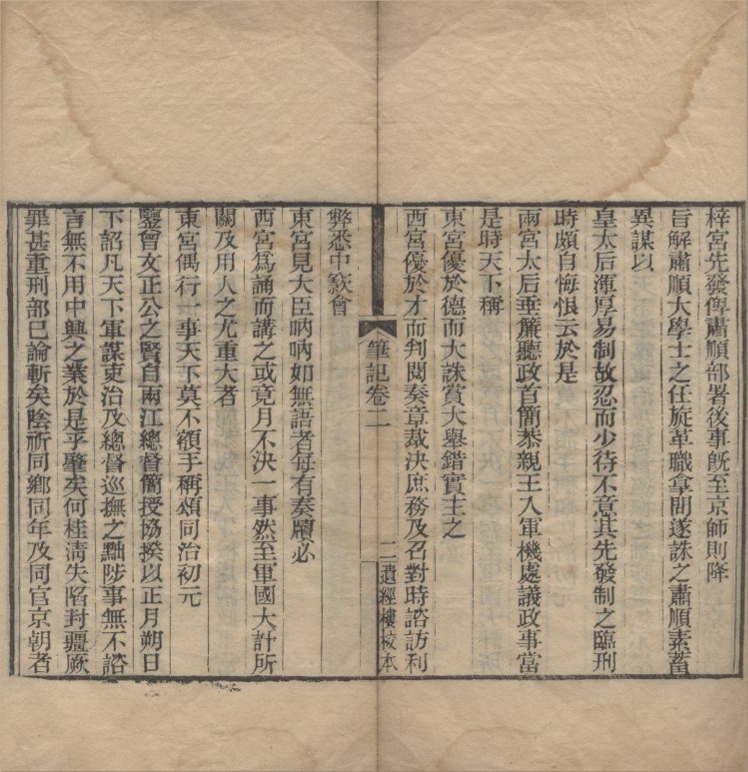 梓宮先發俾肅順部署後事旣至京師則降
旨解肅順大學士之任旋革職拿問遂誅之肅順素蓄
異謀以
皇太后渾厚易制故忍而少待不意其先發制之臨刑
時頗自悔恨云於是
兩宮太后垂簾聽政首簡恭親王入軍機處議政事當
是時天下稱
東宮優於德而大誅賞大舉錯實主之
西宮優於才而判閱奏章裁決庶務及召對時諮訪利
筆記卷二
二
遺經樓校本
弊悉中窾會
東宮見大臣吶吶如無語者每有奏牘必
西宮爲誦而講之或竟月不決一事然至軍國大計所
關及用人之尤重大者
東宮偶行一事天下莫不額手稱頌同治初元
鑒曾文正公之賢自兩江總督簡授協揆以正月朔日
下詔凡天下軍謀吏治及總督巡撫之黜陟事無不諮
言無不用中興之業於是乎肇矣何桂淸失陷封疆厥
罪甚重刑部已論斬矣陰祈同鄉同年及同官京朝者